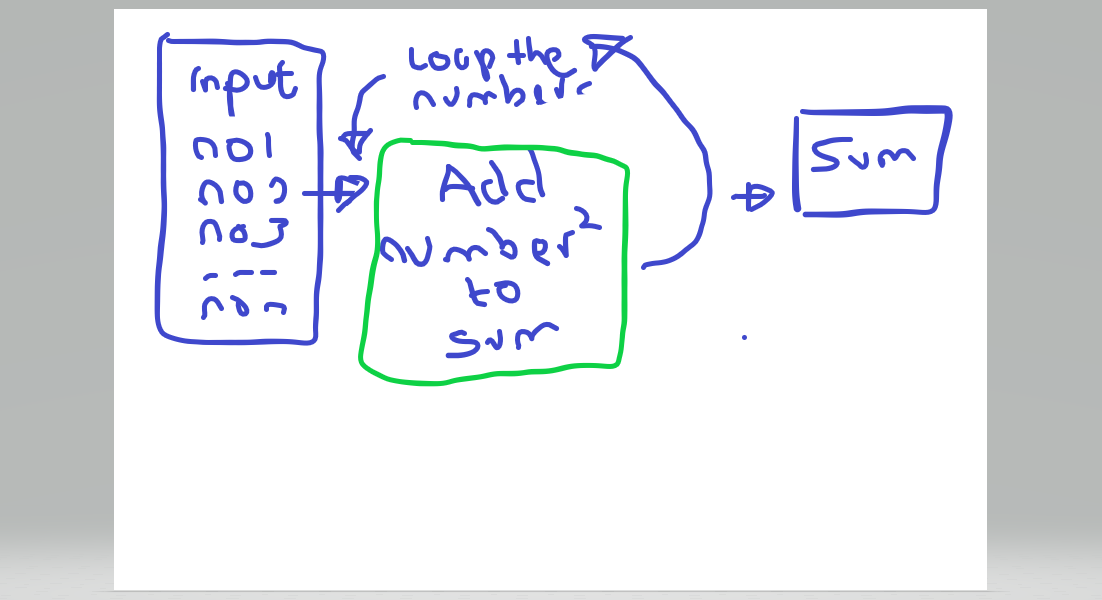 input
no1
no2
no3
- - -
non
Loop the
numbers
Add
number²
to
sum
sum